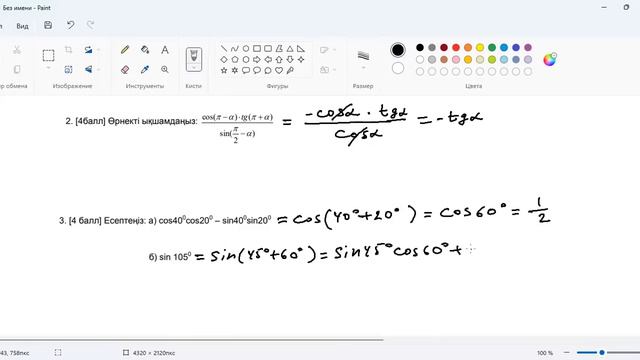 Без имени - Paint
Вид
Изображение
Инструменты
Кисти
Фигуры
Цвета
2. [4балл] Өрнекті ықшамдаңыз: cos(π−α)·tg(π+α) / sin(π/2−α) = −cosα · tgα / cosα = −tgα
3. [4 балл] Есептеңіз: а) cos40⁰cos20⁰ – sin40⁰sin20⁰ = cos(40°+20°) = cos60° = 1/2
б) sin 105⁰ = sin(45°+60°) = sin45°cos60°+
43, 758пкс
4320 × 2120пкс
100 %